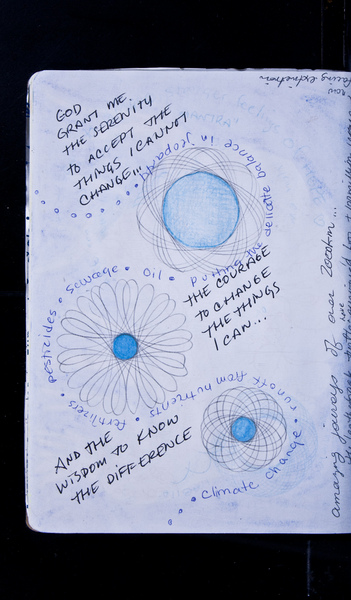 GOD
GRANT ME.
THE SERENITY
TO ACCEPT THE
THINGS I CANNOT
CHANGE...
putting the delicate balance in jeopardy
THE COURAGE
TO CHANGE
THE THINGS
I CAN...
pesticides • sewage • oil •
fertilizers •
runoff from nutrients •
climate change •
AND THE
WISDOM TO KNOW
THE DIFFERENCE
amazing journeys of our
facing extinction